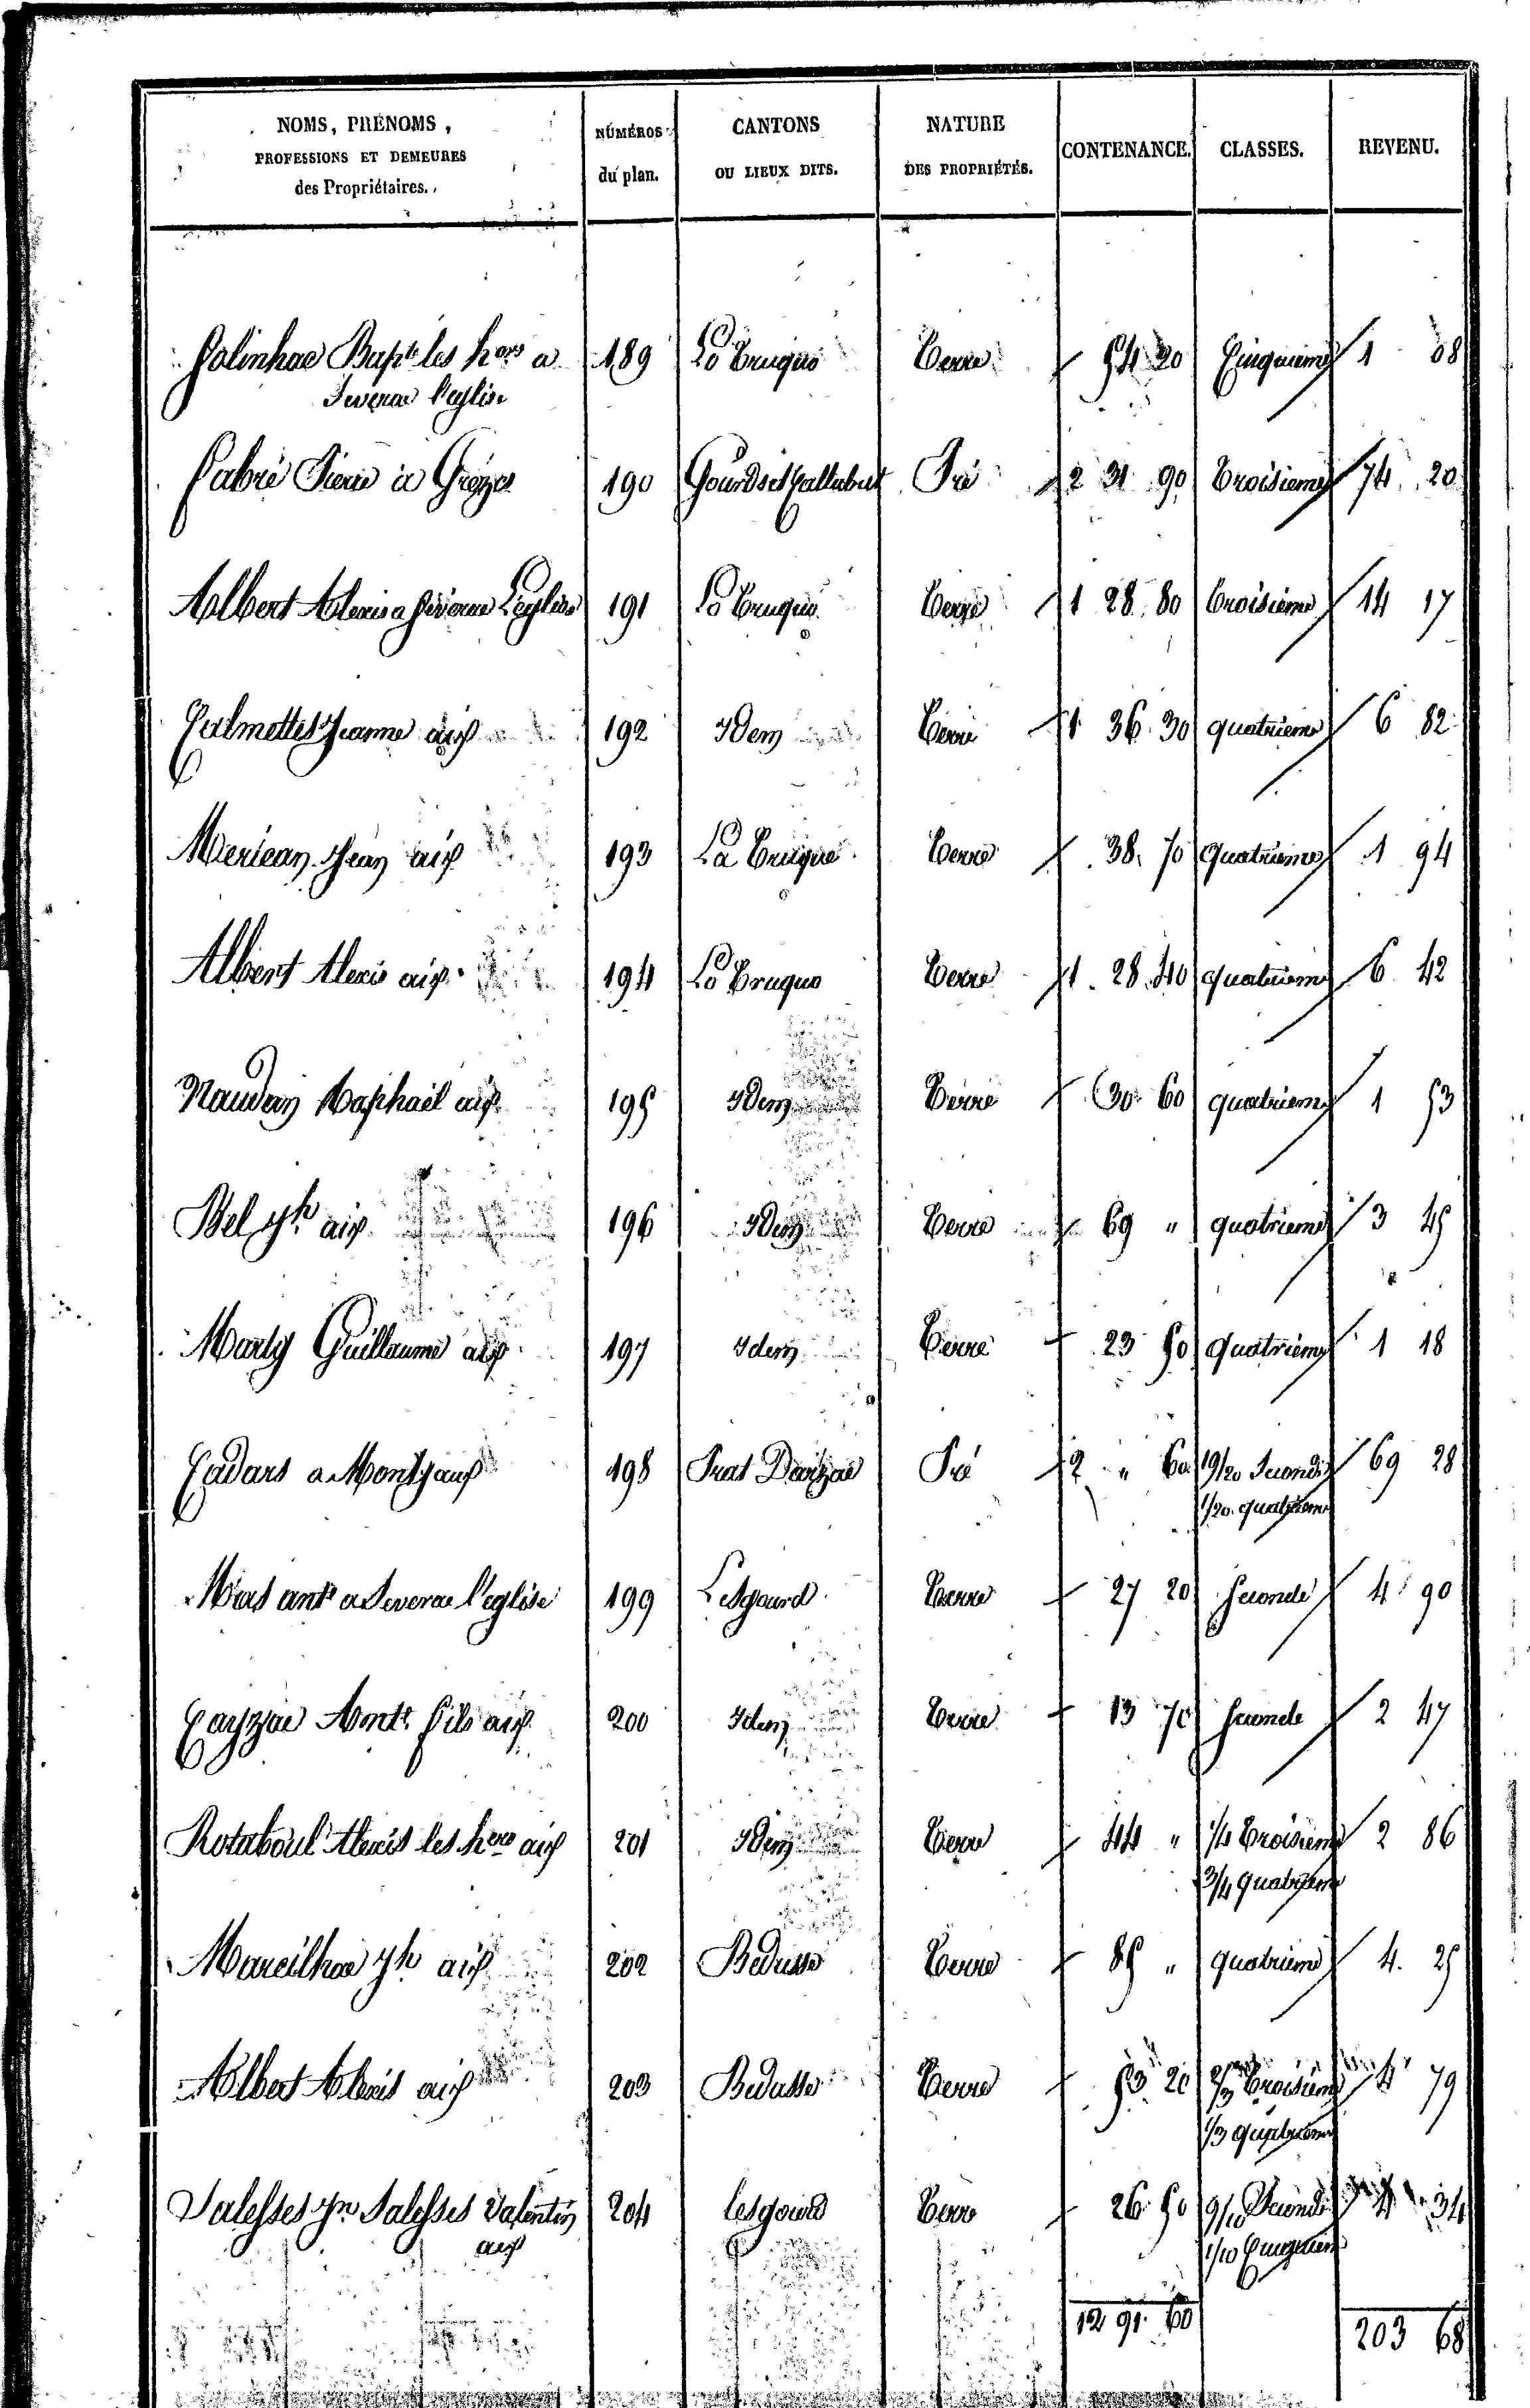 NOMS, PRÉNOMS, NUMÉROS CANTONS NATURE CONTENANCE. CLASSES. REVENU.
PROFESSIONS ET DEMEURES du plan. OU LIEUX DITS. DES PROPRIÉTÉS.
des Propriétaires.
Galinhac Bapte les hers a 189 Terre 54 20 Cinquieme 1 08
Severac l'eglise
Fabre Pierre a 190 Pré 2 31 90 Troisieme 74 20
Albert Alexis a Severac L'eglise 191 Terre 1 28 80 Troisieme 14 17
Calmettes Jeanne aux 192 Idem Terre 1 36 30 quatrieme 6 82
Jean aux 193 Terre 38 70 Quatrieme 1 94
Albert Alexis aux 194 Terre 1 28 40 quatrieme 6 42
Raphaël aux 195 Idem Terre 30 60 quatrieme 1 53
Bel Jh aux 196 Idem Terre 69 " quatrieme 3 45
Marty Guillaume aux 197 Idem Terre 23 50 Quatrieme 1 18
Cadars a 198 Prat Pré 2 " 60 19/20 Seconde 69 28
1/20 quatrieme
Mas ante a Severac l'eglise 199 Lesgourd Terre 27 20 Seconde 4 90
Cayzac Ante fils aux 200 Idem Terre 13 70 Seconde 2 47
Rotaboul Alexis les hers aux 201 Idem Terre 44 " 1/4 Troisieme 2 86
3/4 quatrieme
Marcilhac Jh aux 202 Bedusse Terre 85 " quatrieme 4 25
Albert Alexis aux 203 Bedusse Terre 53 20 2/3 Troisieme 4 79
1/3 quatrieme
Salesses Jn Salesses Valentin 204 Lesgourd Terre 26 50 9/10 Seconde 4 34
aux 1/10 Cinquieme
12 91 60 203 68